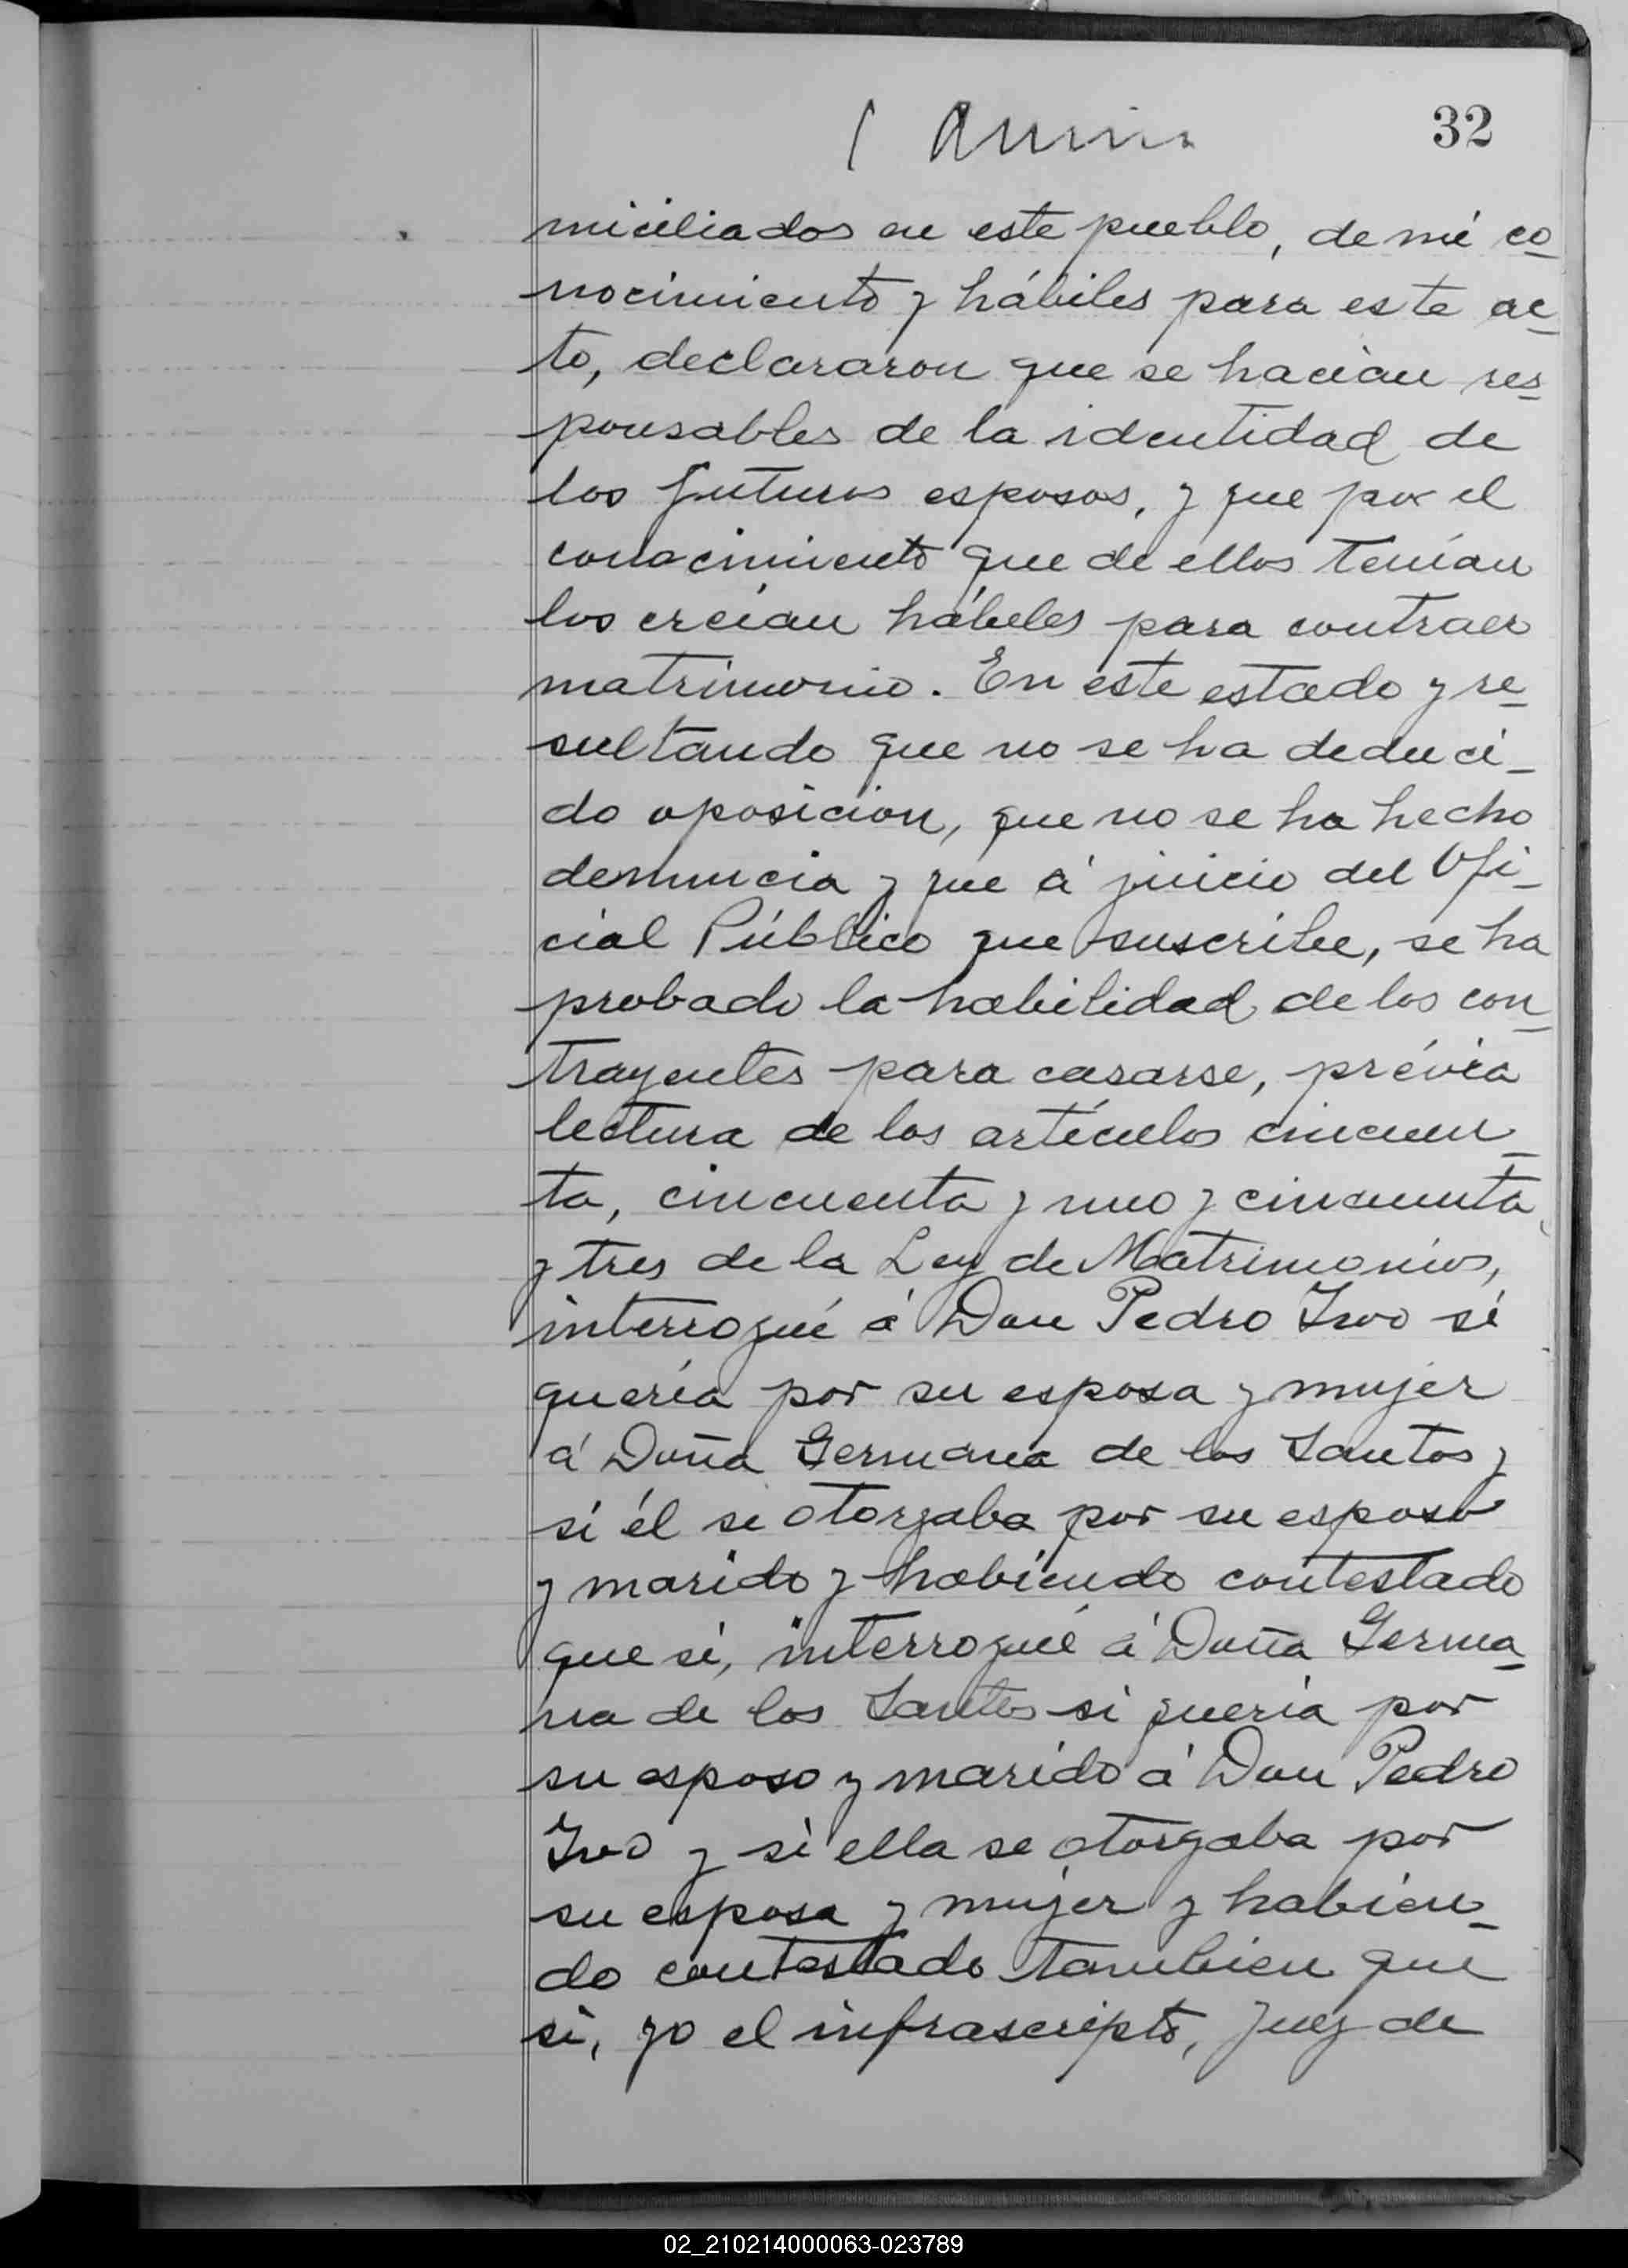 32
miciliados en este pueblo, de mi co
nocimiento y hábiles para este ac
to, declararon que se hacían res
ponsables de la identidad de
los futuros esposos, y que por el
conocimiento que de ellos tenían
los creían hábiles para contraer
matrimonio. En este estado y re
sultando que no se ha deduci_
do oposicion, que no se ha hecho
denuncia y que á juicio del Ofi_
cial Público que suscribe, se ha
probado la habilidad de los con
trayentes para casarse, prévia
lectura de los artículos cincuen
ta, cincuenta y uno y cincuenta
y tres de la Ley de Matrimonios,
interrogué á Don Pedro Ivo si
quería por su esposa y mujer
á Doña Germana de los Santos y
si él se otorgaba por su esposo
y marido y habiendo contestado
que si, interrogué á Doña Germa
na de los Santos si quería por
su esposo y marido á Don Pedro
Ivo y si ella se otorgaba por
su esposa y mujer y habien_
do contestado tambien que
si, yo el infrascripto, Juez de
02_210214000063-023789